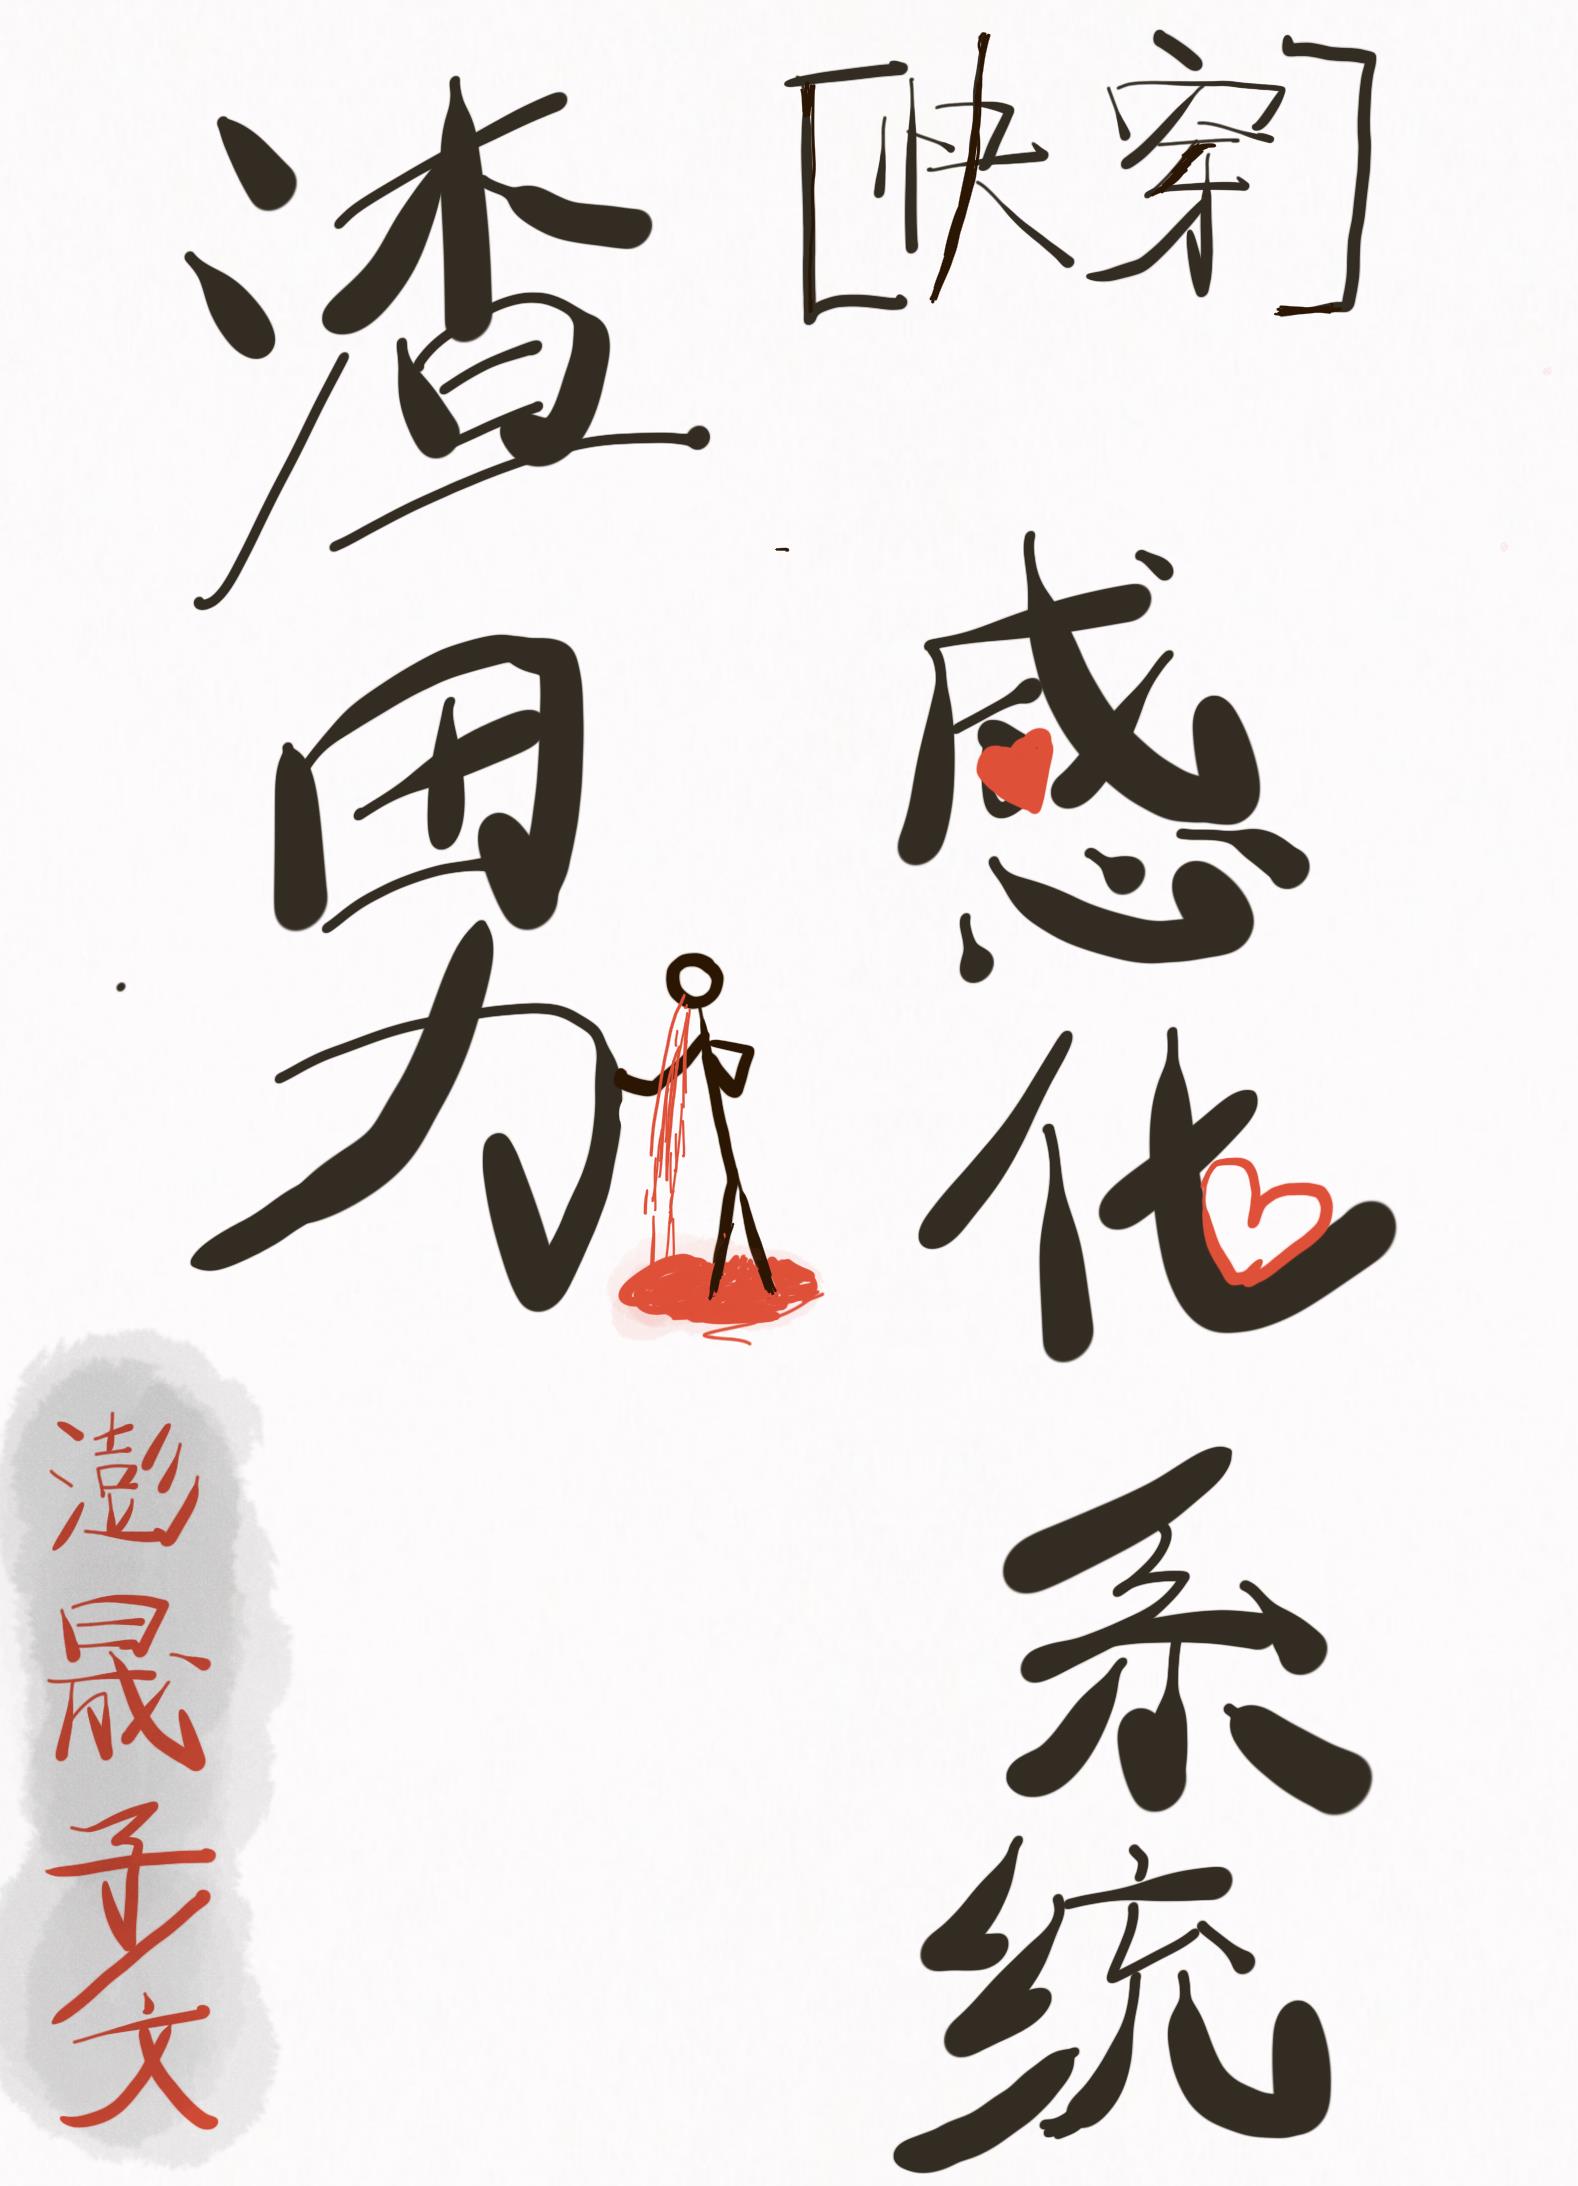 [快穿]
渣男
感化系统
澎晟子/文